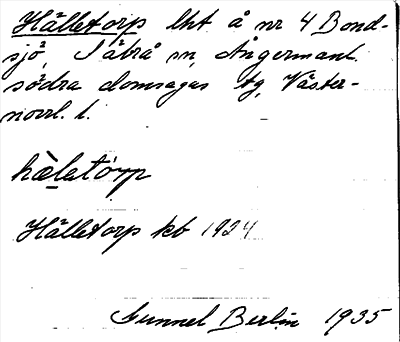 Hälletorp lht å nr 4 Bond-
sjö, Säbrå sn, Ångermanl.
södra domsagas tg, Väster-
norrl. l.
hæ̀letórp
Hälletorp kb 1924
Gunnel Berlin 1935